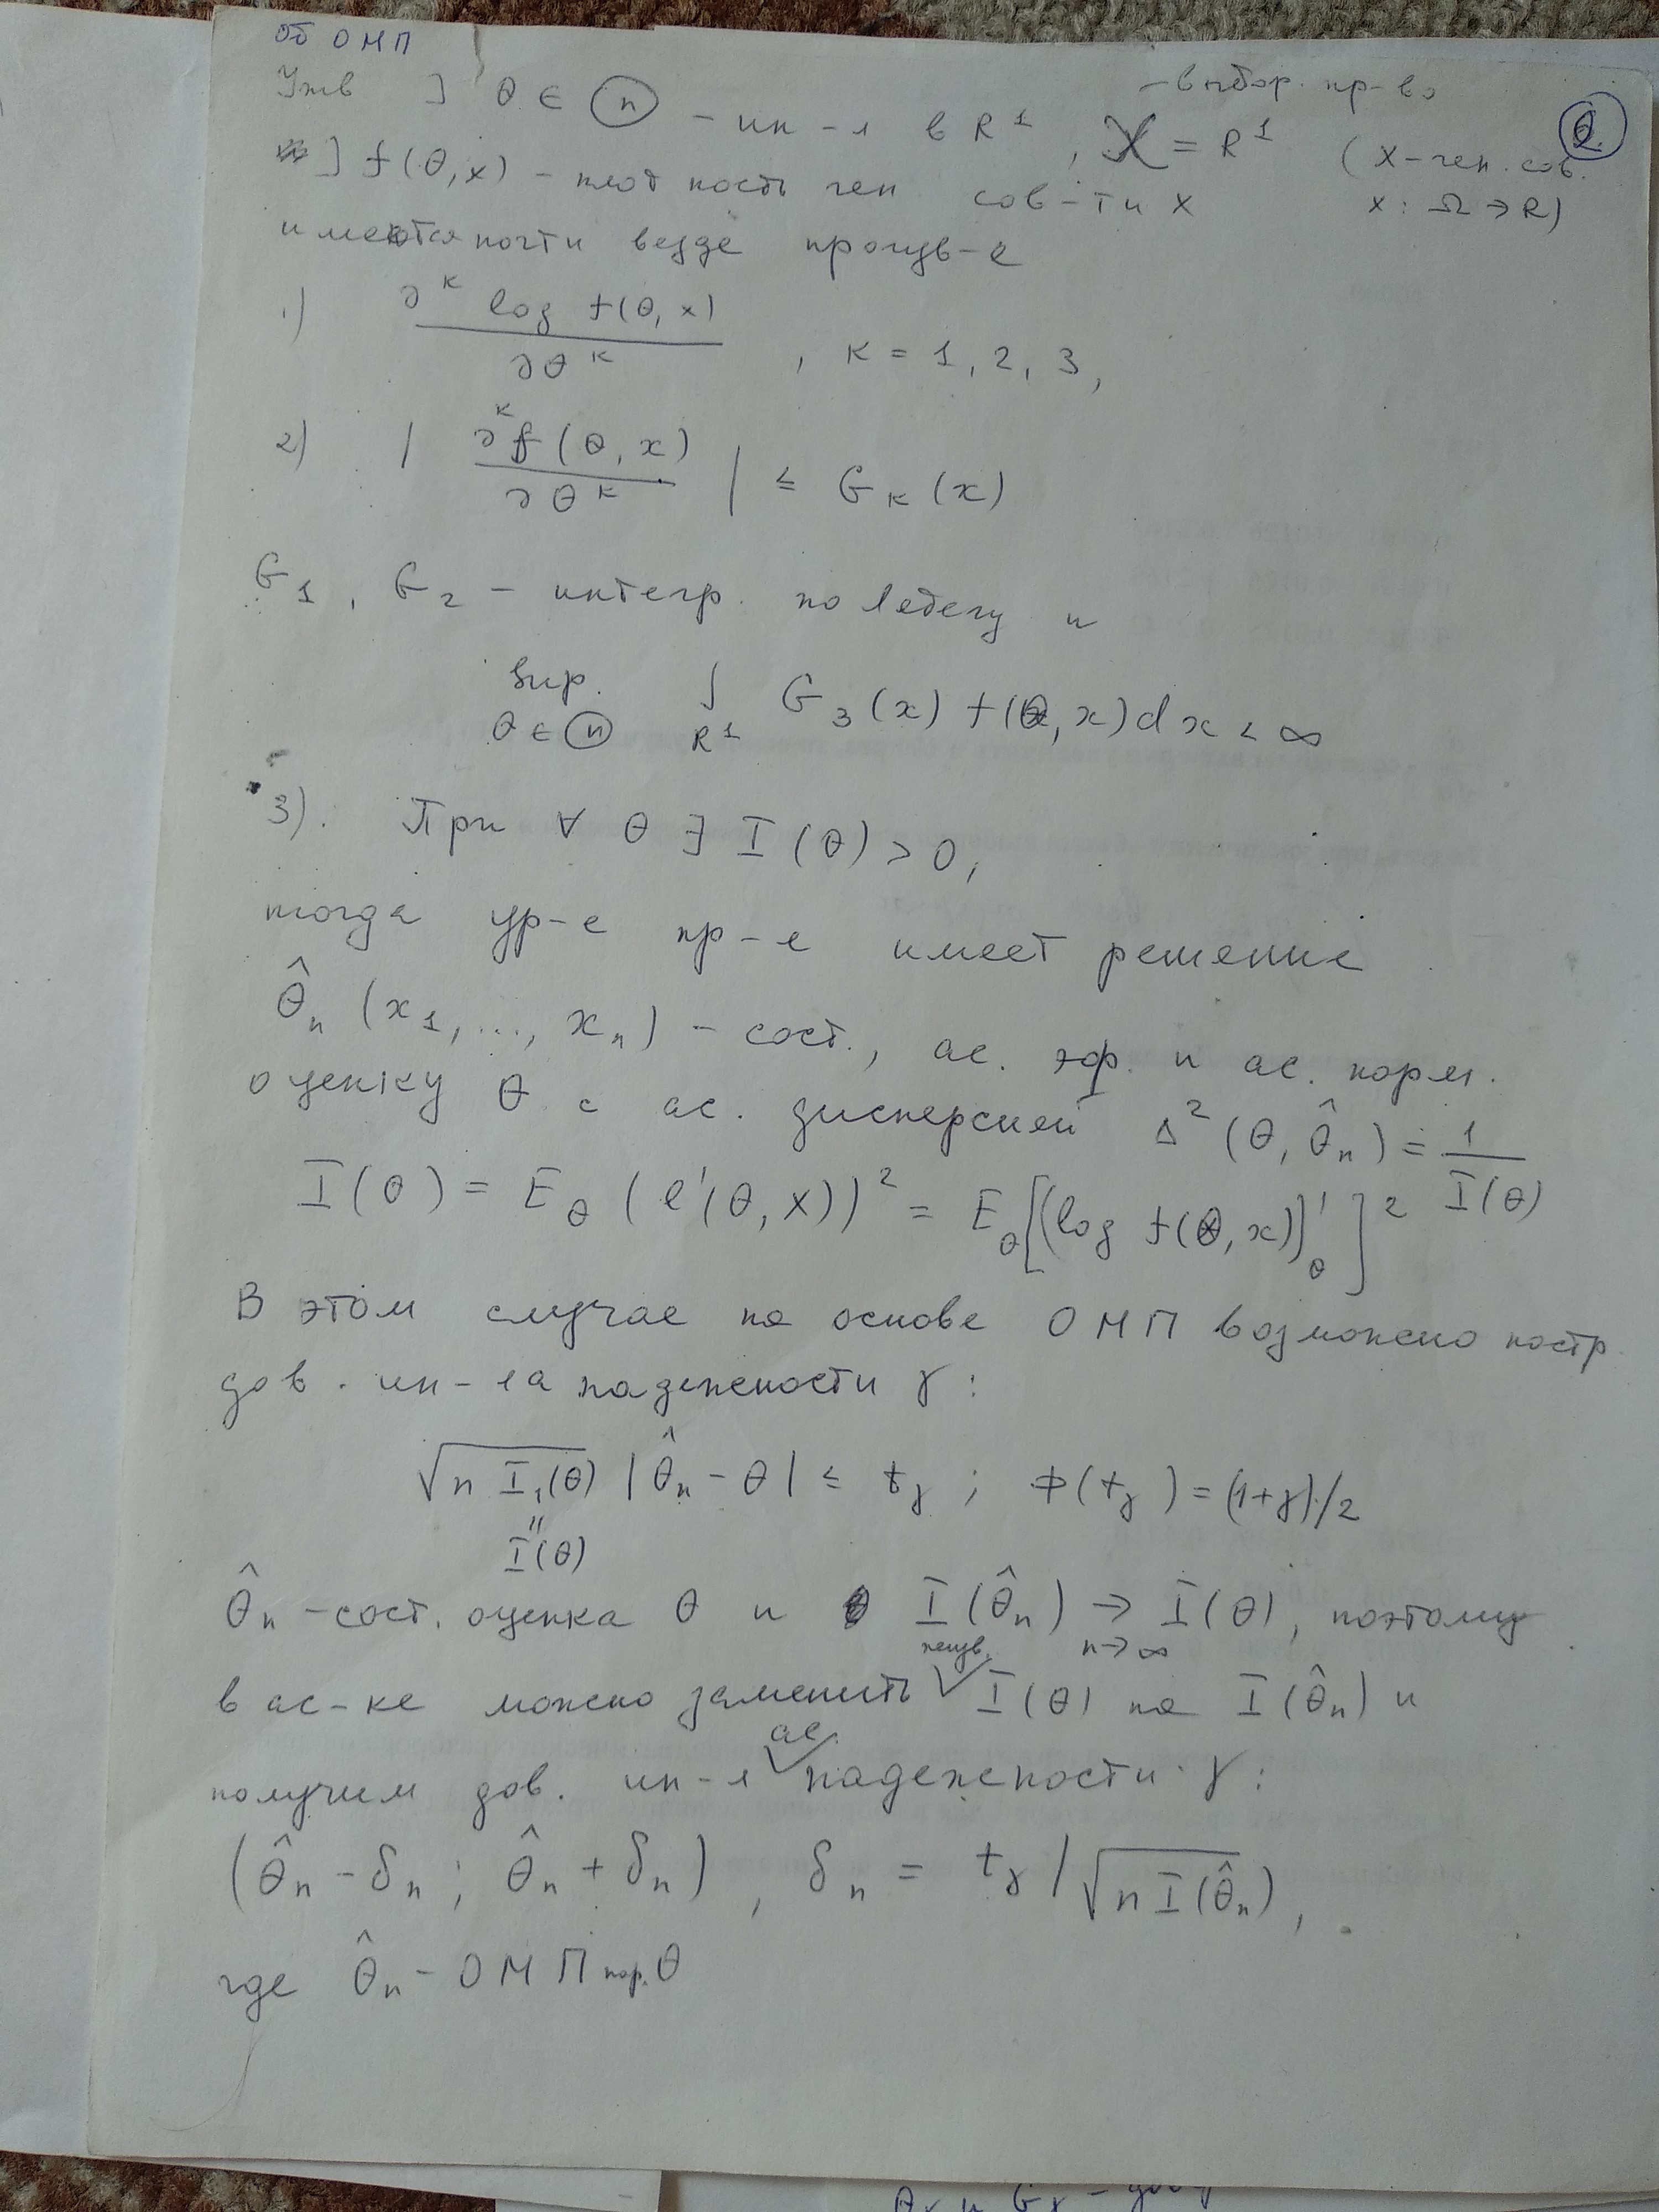 об ОМП
Утв ] θ ∈ Ⓗ - ин-л в R¹, 𝒳 = R¹ - выбор. пр-во (X - ген. сов. X: Ω → R)
2.
] f(θ, x) - плотность ген сов-ти X
имеются почти везде произв-е
1) ∂ᵏ log f(θ, x) / ∂θᵏ , к = 1, 2, 3,
2) | ∂ᵏ f(θ, x) / ∂θᵏ | ≤ Gₖ(x)
G₁, G₂ - интегр. по Лебегу и
sup_{θ ∈ Ⓗ} ∫_{R¹} G₃(x) f(θ, x) dx < ∞
3). При ∀ θ ∃ I(θ) > 0,
тогда ур-е пр-е имеет решение
θ̂ₙ(x₁, ..., xₙ) - сост., ас. эф. и ас. норм.
оценку θ с ас. дисперсией Δ²(θ, θ̂ₙ) = 1 / I(θ)
I(θ) = E_θ (l'(θ, X))² = E_θ [(log f(θ, x))'_θ]²
В этом случае на основе ОМП возможно постр
дов. ин-ла надежности γ:
√(n I₁(θ)) |θ̂ₙ - θ| ≤ t_γ ; Φ(t_γ) = (1+γ)/2
"
I(θ)
θ̂ₙ - сост. оценка θ и I(θ̂ₙ) →_{n→∞} I(θ), поэтому
в ас-ке можно заменить неизв. I(θ) на I(θ̂ₙ) и
получим дов. ин-л ас. надежности γ:
(θ̂ₙ - δₙ ; θ̂ₙ + δₙ), δₙ = t_γ / √(n I(θ̂ₙ)),
где θ̂ₙ - ОМП пар. θ